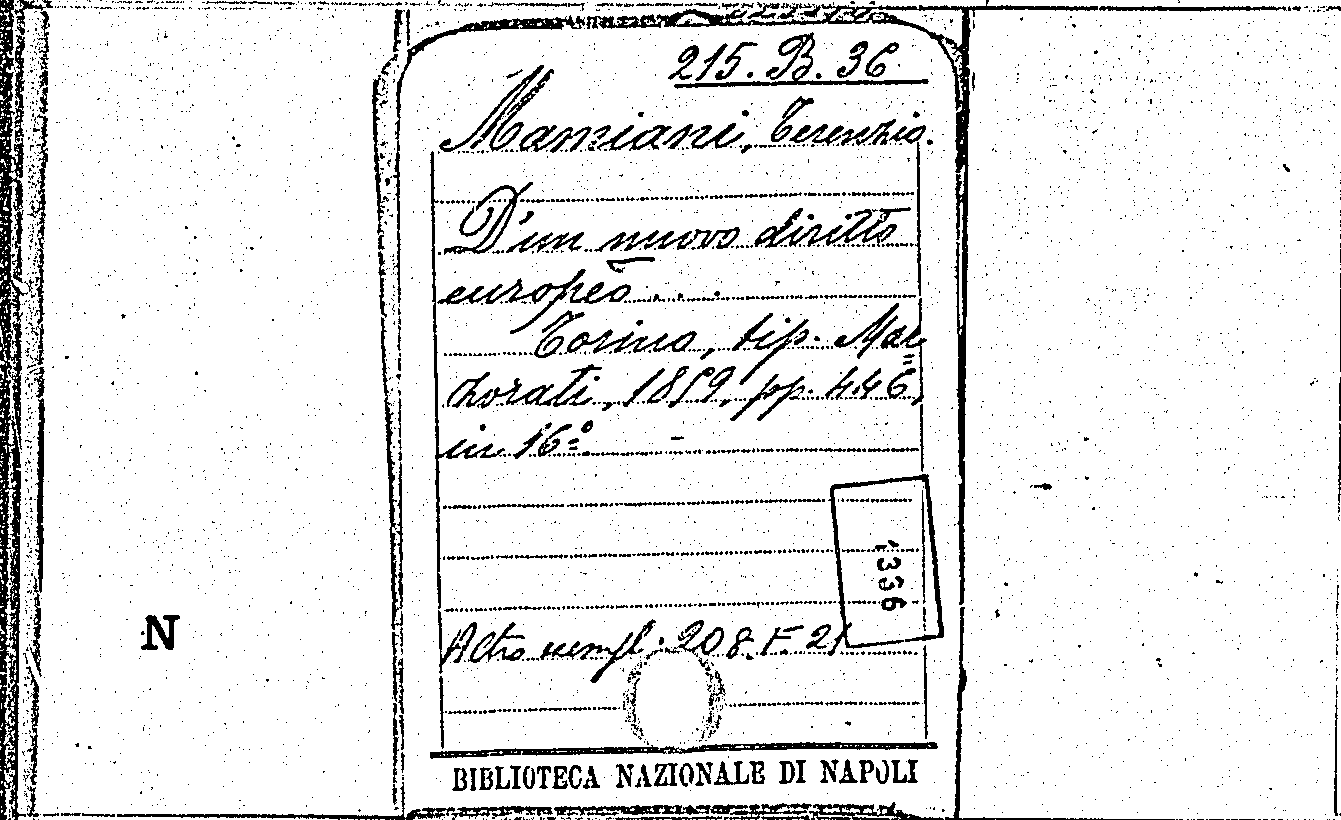 215. B. 36
Mamiani, Terenzio.
D'un nuovo diritto
europeo...
Torino, tip. Mar
zorati, 1859, pp. 446,
in 16º.
1336
N
Altro esempl. 208. F. 21
BIBLIOTECA NAZIONALE DI NAPOLI